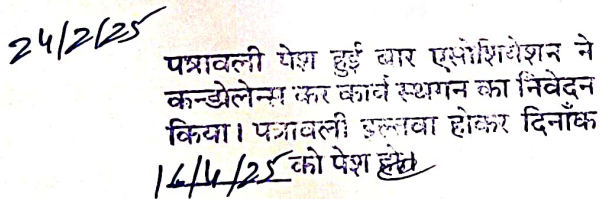 24/2/25
पत्रावली पेश हुई बार एसोशियेशन ने
कन्डोलेन्स कर कार्य स्थगन का निवेदन
किया। पत्रावली इल्तवा होकर दिनाँक
16/4/25 को पेश हो।